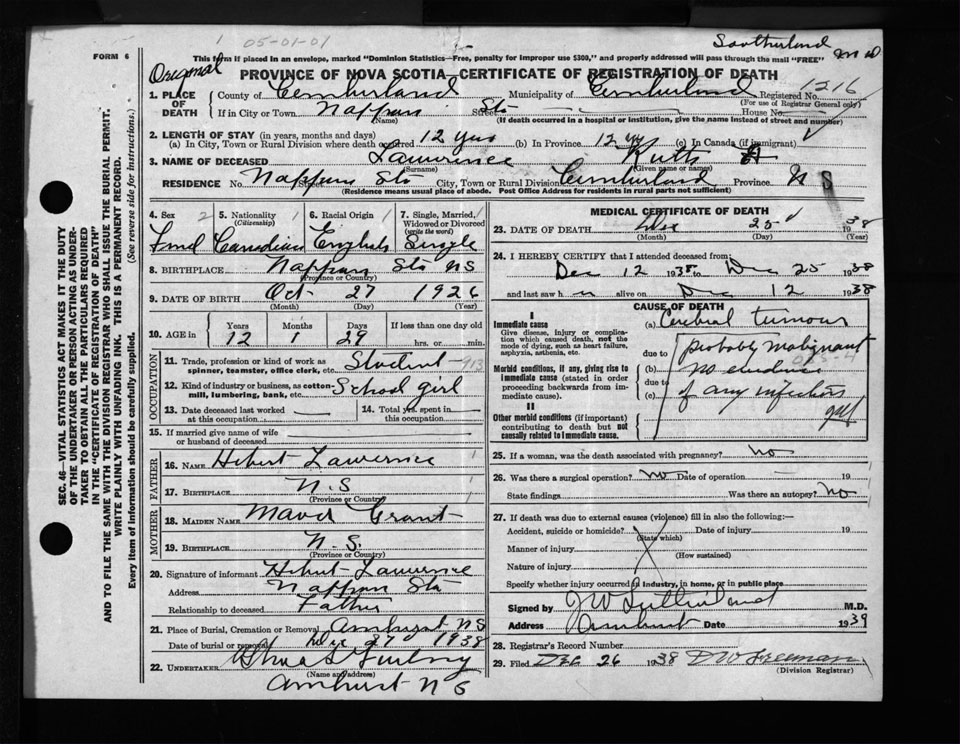 1 05-01-01
Southerland
FORM 6
This form if placed in an envelope, marked "Dominion Statistics—Free, penalty for improper use $300," and properly addressed will pass through the mail "FREE" M D
Original
PROVINCE OF NOVA SCOTIA—CERTIFICATE OF REGISTRATION OF DEATH
1. PLACE OF DEATH County of Cumberland Municipality of Cumberland Registered No. 1216
(For use of Registrar General only)
If in City or Town Nappan Sta Street House No.
(Name) (If death occurred in a hospital or institution, give the name instead of street and number)
2. LENGTH OF STAY (in years, months and days)
(a) In City, Town or Rural Division where death occurred 12 yrs (b) In Province 12 yrs (c) In Canada (if immigrant)
3. NAME OF DECEASED Lawrence Ruth
(Surname) (Given name or names)
RESIDENCE No. Nappan Sta Street City, Town or Rural Division Cumberland Province N S
(Residence means usual place of abode. Post Office Address for residents in rural parts not sufficient)
SEC. 46—VITAL STATISTICS ACT MAKES IT THE DUTY
OF THE UNDERTAKER OR PERSON ACTING AS UNDER-
TAKER TO OBTAIN ALL THE PARTICULARS REQUIRED
IN THE "CERTIFICATE OF REGISTRATION OF DEATH"
AND TO FILE THE SAME WITH THE DIVISION REGISTRAR WHO SHALL ISSUE THE BURIAL PERMIT.
WRITE PLAINLY WITH UNFADING INK. THIS IS A PERMANENT RECORD.
Every item of information should be carefully supplied. (See reverse side for instructions.)
4. Sex 2 5. Nationality 1 6. Racial Origin 1 7. Single, Married, 1
(Citizenship) Widowed or Divorced
(write the word)
Fmd Canadian English Single
8. BIRTHPLACE Nappan Sta NS
(Province or Country)
9. DATE OF BIRTH Oct 27 1926
(Month) (Day) (Year)
10. AGE in Years Months Days If less than one day old
12 1 29 hrs. or min.
OCCUPATION
11. Trade, profession or kind of work as
spinner, teamster, office clerk, etc. Student 913
12. Kind of industry or business, as cotton-
mill, lumbering, bank, etc. School girl
13. Date deceased last worked at this occupation. 14. Total yrs. spent in this occupation.
15. If married give name of wife
or husband of deceased
FATHER
16. NAME Hibert Lawrence 1
17. BIRTHPLACE N.S 1
(Province or Country)
MOTHER
18. MAIDEN NAME Mavor Grant
19. BIRTHPLACE N.S.
(Province or Country)
20. Signature of informant Hibert Lawrence
Address Nappan Sta
Relationship to deceased Father
21. Place of Burial, Cremation or Removal Amherst NS
Date of burial or removal Dec 27 1938
22. UNDERTAKER
(Name and address)
Amherst N S
MEDICAL CERTIFICATE OF DEATH
23. DATE OF DEATH Dec 25 1938
(Month) (Day) (Year)
24. I HEREBY CERTIFY that I attended deceased from:
Dec 12 1938 to Dec 25 1938
and last saw h er alive on Dec 12 1938
CAUSE OF DEATH
I
Immediate cause (a) Cerebral tumour
Give disease, injury or complication which caused death, not the mode of dying, such as heart failure, asphyxia, asthenia, etc.
due to probably malignant
Morbid conditions, if any, giving rise to immediate cause (stated in order proceeding backwards from immediate cause). (b) no evidence
due to
(c) of any infection
II
Other morbid conditions (if important) contributing to death but not causally related to immediate cause.
25. If a woman, was the death associated with pregnancy? no
26. Was there a surgical operation? no Date of operation — 19
State findings Was there an autopsy? no
27. If death was due to external causes (violence) fill in also the following:—
Accident, suicide or homicide? Date of injury 19
(State which)
Manner of injury
(How sustained)
Nature of injury
Specify whether injury occurred in industry, in home, or in public place
Signed by J W Sutherland M.D.
Address Amherst Date 1939
28. Registrar's Record Number
29. Filed Dec 26 1938 D W Freeman
(Division Registrar)